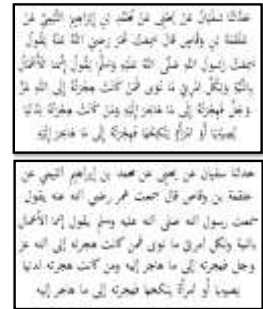 حَدَّثَنَا سُفْيَانُ عَنْ يَحْيَى عَنْ مُحَمَّدِ بْنِ إِبْرَاهِيمَ التَّيْمِيِّ عَنْ
عَلْقَمَةَ بْنِ وَقَّاصٍ قَالَ سَمِعْتُ عُمَرَ رَضِيَ اللَّهُ عَنْهُ يَقُولُ
سَمِعْتُ رَسُولَ اللَّهِ صَلَّى اللَّهُ عَلَيْهِ وَسَلَّمَ يَقُولُ إِنَّمَا الْأَعْمَالُ
بِالنِّيَّةِ وَلِكُلِّ امْرِئٍ مَا نَوَى فَمَنْ كَانَتْ هِجْرَتُهُ إِلَى اللَّهِ عَزَّ
وَجَلَّ فَهِجْرَتُهُ إِلَى مَا هَاجَرَ إِلَيْهِ وَمَنْ كَانَتْ هِجْرَتُهُ لِدُنْيَا
يُصِيبُهَا أَوْ امْرَأَةٍ يَنْكِحُهَا فَهِجْرَتُهُ إِلَى مَا هَاجَرَ إِلَيْهِ
حدثنا سفيان عن يحيى عن محمد بن إبراهيم التيمي عن
علقمة بن وقاص قال سمعت عمر رضي الله عنه يقول
سمعت رسول الله صلى الله عليه وسلم يقول إنما الأعمال
بالنية ولكل امرئ ما نوى فمن كانت هجرته إلى الله عز
وجل فهجرته إلى ما هاجر إليه ومن كانت هجرته لدنيا
يصيبها أو امرأة ينكحها فهجرته إلى ما هاجر إليه